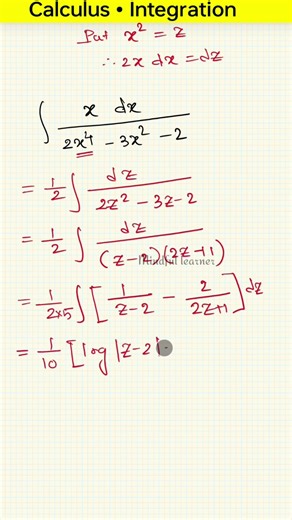 Calculus • Integration
Put x² = z
∴ 2x dx = dz
∫ x dx / (2x⁴ - 3x² - 2)
= 1/2 ∫ dz / (2z² - 3z - 2)
= 1/2 ∫ dz / ((z-2)(2z+1))
Mindful learner
= 1/(2×5) ∫ [1/(z-2) - 2/(2z+1)] dz
= 1/10 [log |z-2| -